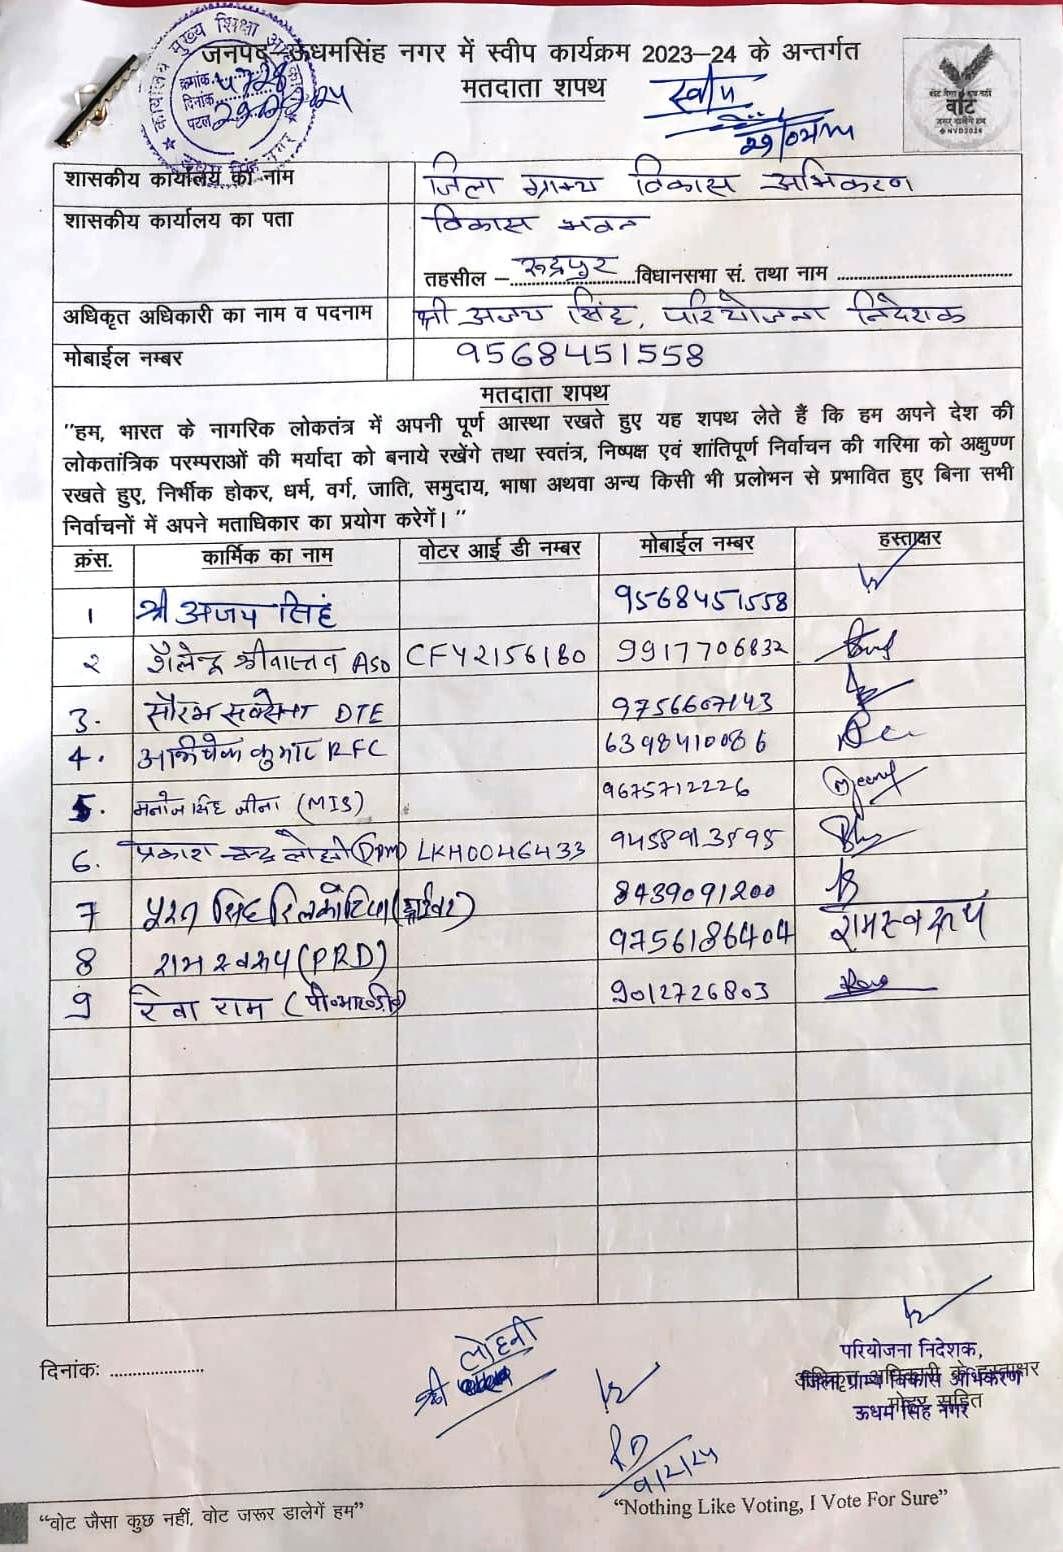 जनपद ऊधमसिंह नगर में स्वीप कार्यक्रम 2023–24 के अन्तर्गत
मतदाता शपथ
कार्यालय मुख्य शिक्षा
क्रमांक
दिनांक
पटल
स्वीप
वोट
#NVD2024
शासकीय कार्यालय का नाम जिला ग्राम्य विकास अभिकरण
शासकीय कार्यालय का पता विकास भवन
तहसील – रूद्रपुर विधानसभा सं. तथा नाम
अधिकृत अधिकारी का नाम व पदनाम श्री अजय सिंह, परियोजना निदेशक
मोबाईल नम्बर 9568451558
मतदाता शपथ
"हम, भारत के नागरिक लोकतंत्र में अपनी पूर्ण आस्था रखते हुए यह शपथ लेते हैं कि हम अपने देश की
लोकतांत्रिक परम्पराओं की मर्यादा को बनाये रखेंगे तथा स्वतंत्र, निष्पक्ष एवं शांतिपूर्ण निर्वाचन की गरिमा को अक्षुण्ण
रखते हुए, निर्भीक होकर, धर्म, वर्ग, जाति, समुदाय, भाषा अथवा अन्य किसी भी प्रलोभन से प्रभावित हुए बिना सभी
निर्वाचनों में अपने मताधिकार का प्रयोग करेगें। "
क्रंस. कार्मिक का नाम वोटर आई डी नम्बर मोबाईल नम्बर हस्ताक्षर
1 श्री अजय सिंह 9568451558
२ शैलेन्द्र श्रीवास्तव ASO CFY2156180 9917706832
3. सौरभ सक्सेना DTE 9756607143
4. अभिषेक कुमार RFC 6398410086
5. मनोज सिंह मीना (MIS) 9675712226
6. प्रकाश चन्द्र लोहनी LKH0046433 9458913595
7 पूरन सिंह सिलकोटिया (ड्राईवर) 8439091200
8 राम स्वरूप (PRD) 9756186404 रामस्वरूप
9 सेवा राम (पी०आर०डी०) 9012726803
दिनांक:
श्री लोहनी
परियोजना निदेशक,
अधिकृत अधिकारी के हस्ताक्षर
जिला ग्राम्य विकास अभिकरण
मोहर सहित
ऊधम सिंह नगर
"वोट जैसा कुछ नहीं, वोट जरूर डालेगें हम"
"Nothing Like Voting, I Vote For Sure"